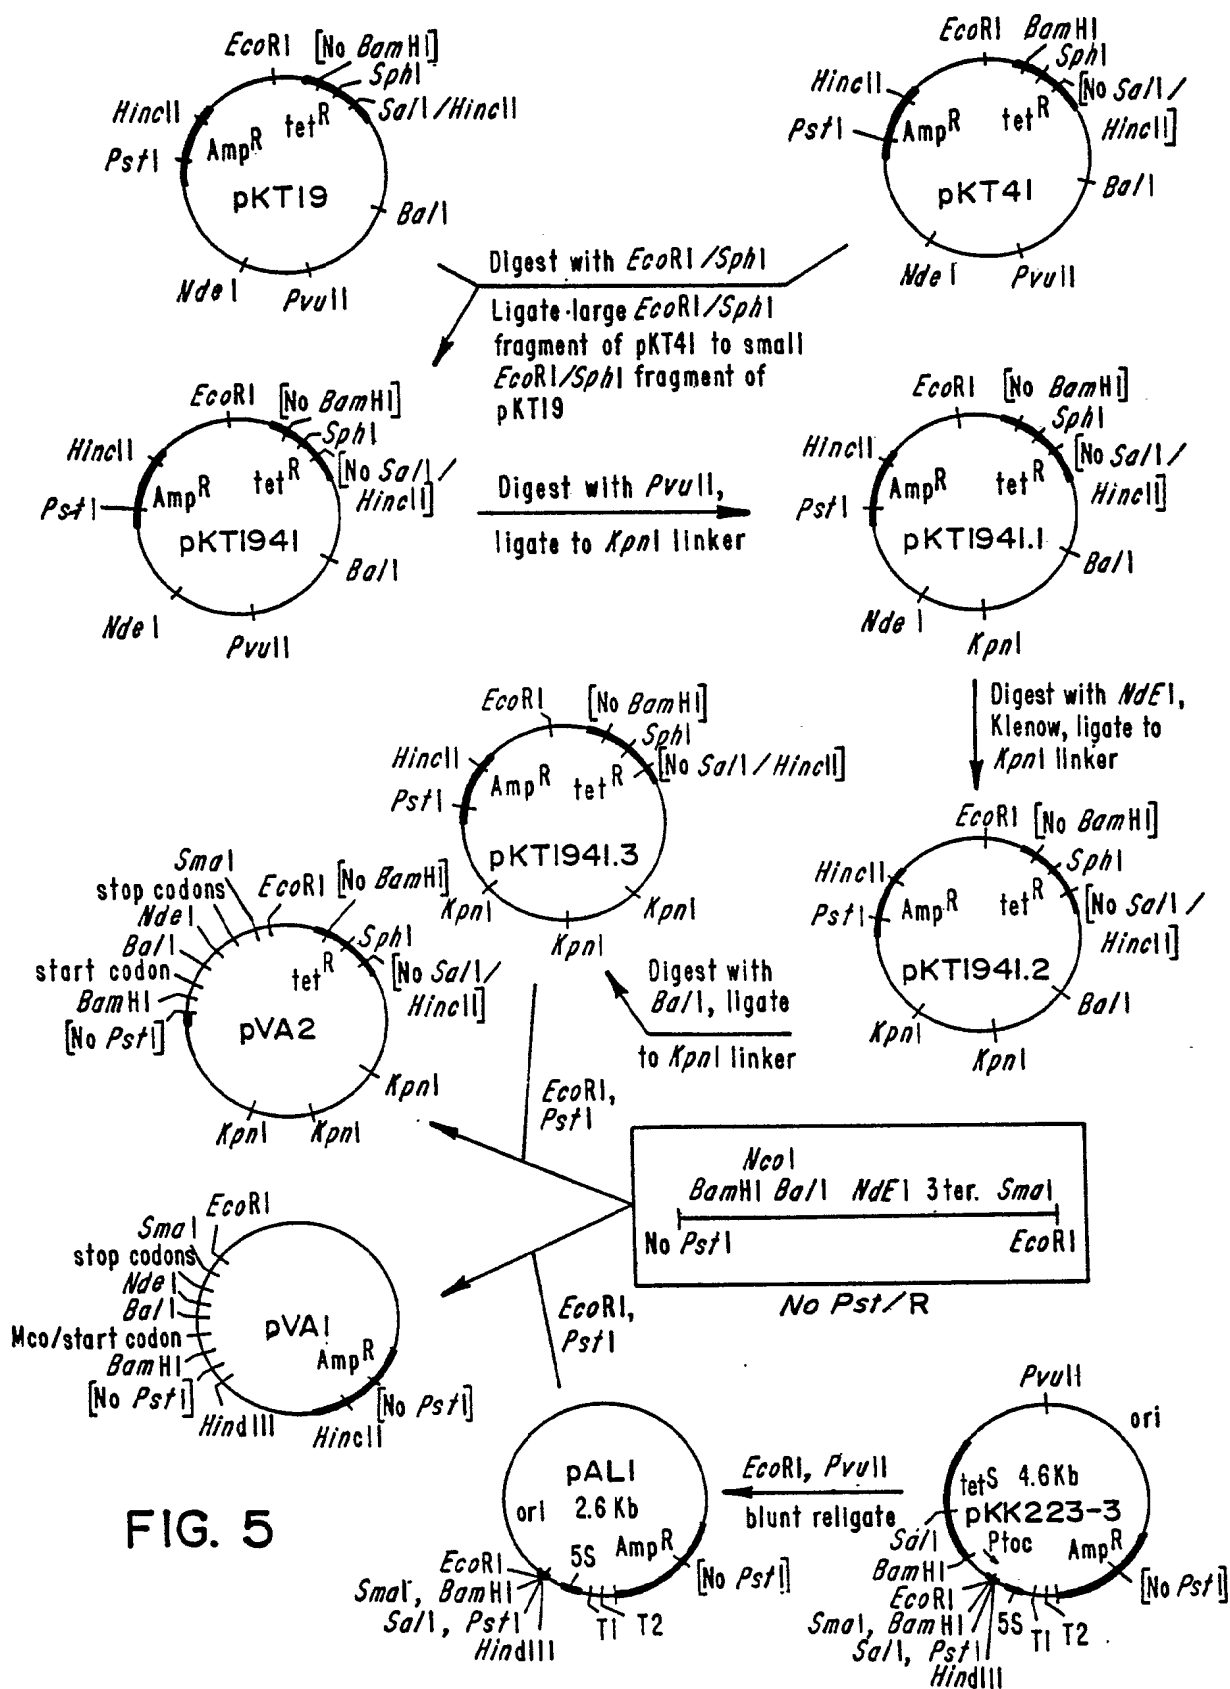 EcoRI [No BamHI]
SphI
SalI/HincII
HincII
tet^R
Amp^R
PstI
pKT19
BalI
NdeI
PvuII
EcoRI BamHI
SphI
[No SalI/
HincII]
HincII
tet^R
Amp^R
PstI
pKT41
BalI
NdeI
PvuII
Digest with EcoRI/SphI
Ligate·large EcoRI/SphI
fragment of pKT41 to small
EcoRI/SphI fragment of
pKT19
EcoRI [No BamHI]
SphI
[No SalI/
HincII]
HincII
tet^R
Amp^R
PstI
pKT1941
BalI
NdeI
PvuII
Digest with PvuII,
ligate to KpnI linker
EcoRI [No BamHI]
SphI
[No SalI/
HincII]
HincII
tet^R
Amp^R
PstI
pKT1941.1
BalI
NdeI
KpnI
Digest with NdEI,
Klenow, ligate to
KpnI linker
EcoRI [No BamHI]
SphI
[No SalI/HincII]
HincII
Amp^R tet^R
PstI
pKT1941.3
KpnI
KpnI
KpnI
EcoRI [No BamHI]
SphI
[No SalI/
HincII]
HincII
tet^R
Amp^R
PstI
pKT1941.2
BalI
KpnI
KpnI
Digest with
BalI, ligate
to KpnI linker
SmaI
stop codons
EcoRI [No BamHI]
NdeI
BalI
SphI
tet^R
[No SalI/
HincII]
start codon
BamHI
[No PstI]
pVA2
KpnI
KpnI
KpnI
EcoRI,
PstI
NcoI
BamHI BalI NdEI 3ter. SmaI
No PstI
EcoRI
No Pst/R
EcoRI
SmaI
stop codons
NdeI
BalI
Mco/start codon
BamHI
[No PstI]
HindIII
pVA1
Amp^R
[No PstI]
HincII
EcoRI,
PstI
pAL1
ori 2.6 Kb
Amp^R
5S
[No PstI]
EcoRI
SmaI, BamHI
SalI, PstI
HindIII
T1 T2
EcoRI, PvuII
blunt religate
PvuII
ori
tet^S 4.6Kb
pKK223-3
Ptac
SalI
BamHI
Amp^R
[No PstI]
EcoRI
SmaI, BamHI
SalI, PstI
HindIII
5S
T1 T2
FIG. 5